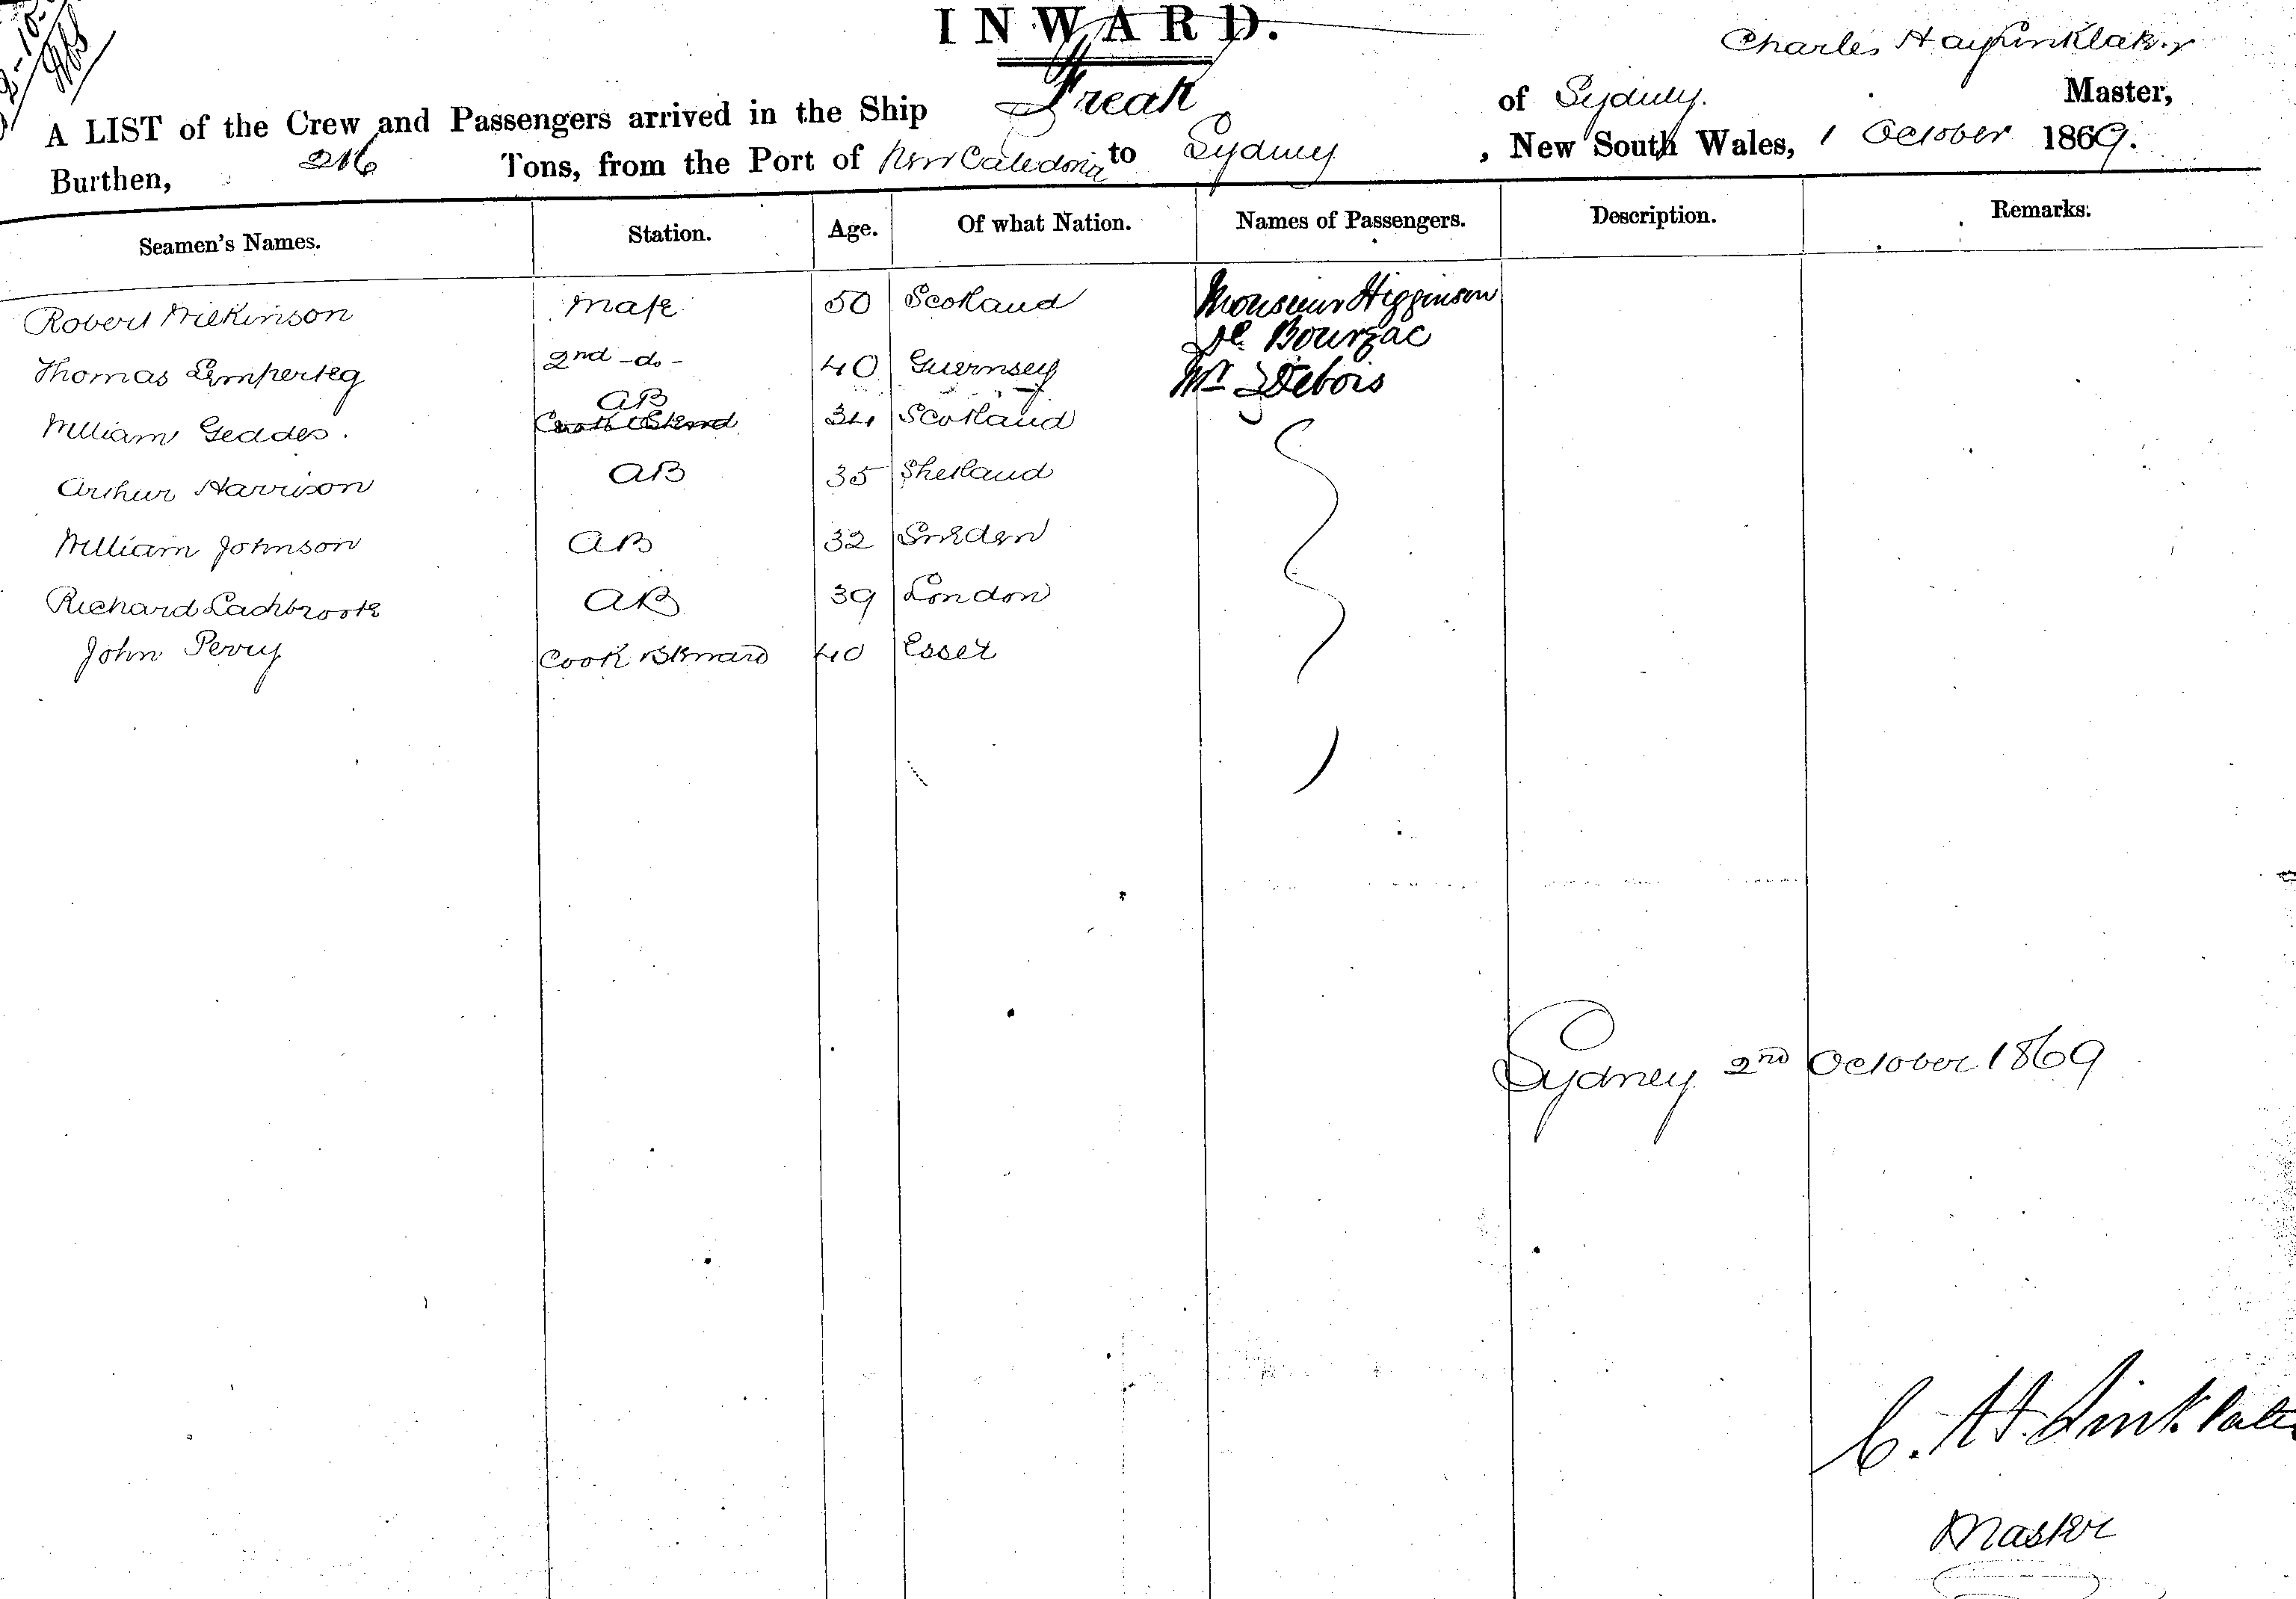 INWARD.
Charles Hay Linklater
A LIST of the Crew and Passengers arrived in the Ship Freak of Sydney. Master,
Burthen, 216 Tons, from the Port of New Caledonia to Sydney, New South Wales, 1 October 1869.
Seamen's Names. Station. Age. Of what Nation. Names of Passengers. Description. Remarks.
Robert Wilkinson Mate 50 Scotland Monsieur Higginson
De Bourzac
Thomas 2nd - do - 40 Guernsey Mr Debois
AB
William Geddes. Cook & Steward 34 Scotland
Arthur Harrison AB 35 Shetland
William Johnson AB 32 Sweden
Richard Lachbrook AB 39 London
John Perry Cook & Steward 40 Essex
Sydney 2nd October 1869
C. H. Linklater
Master